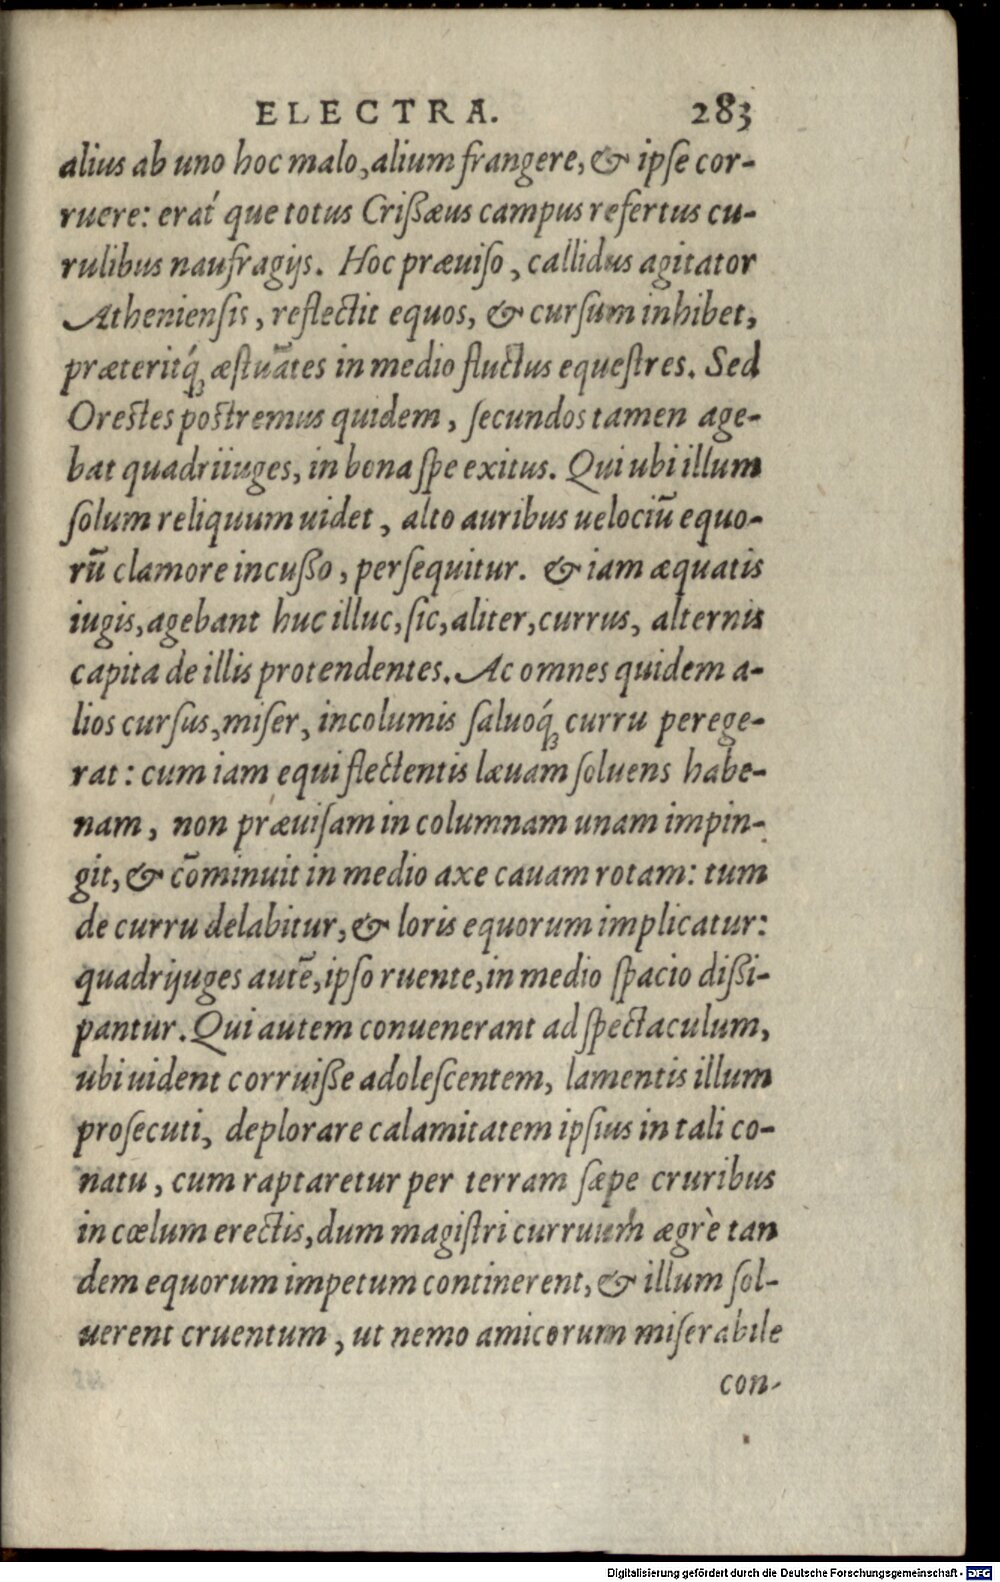 ELECTRA. 283
alius ab uno hoc malo, alium frangere, & ipſe cor-
ruere: erat́ que totus Crißæus campus refertus cu-
rulibus naufragijs. Hoc præuiſo, callidus agitator
Athenienſis, reflectit equos, & curſum inhibet,
præteritq́ꝫ æſtuātes in medio fluctus equeſtres. Sed
Oreſtes poſtremus quidem, ſecundos tamen age-
bat quadriiuges, in bona ſpe exitus. Qui ubi illum
ſolum reliquum uidet, alto auribus uelociū equo-
rū clamore incußo, perſequitur. & iam æquatis
iugis, agebant huc illuc, ſic, aliter, currus, alternis
capita de illis protendentes. Ac omnes quidem a-
lios curſus, miſer, incolumis ſaluoq́ꝫ curru perege-
rat: cum iam equi flectentis læuam ſoluens habe-
nam, non præuiſam in columnam unam impin-
git, & cōminuit in medio axe cauam rotam: tum
de curru delabitur, & loris equorum implicatur:
quadrijuges autē, ipſo ruente, in medio ſpacio dißi-
pantur. Qui autem conuenerant ad ſpectaculum,
ubi uident corruiße adoleſcentem, lamentis illum
proſecuti, deplorare calamitatem ipſius in tali co-
natu, cum raptaretur per terram ſæpe cruribus
in cœlum erectis, dum magiſtri curruum ægrè tan
dem equorum impetum continerent, & illum ſol-
uerent cruentum, ut nemo amicorum miſerabile
con-
Digitalisierung gefördert durch die Deutsche Forschungsgemeinschaft - DFG